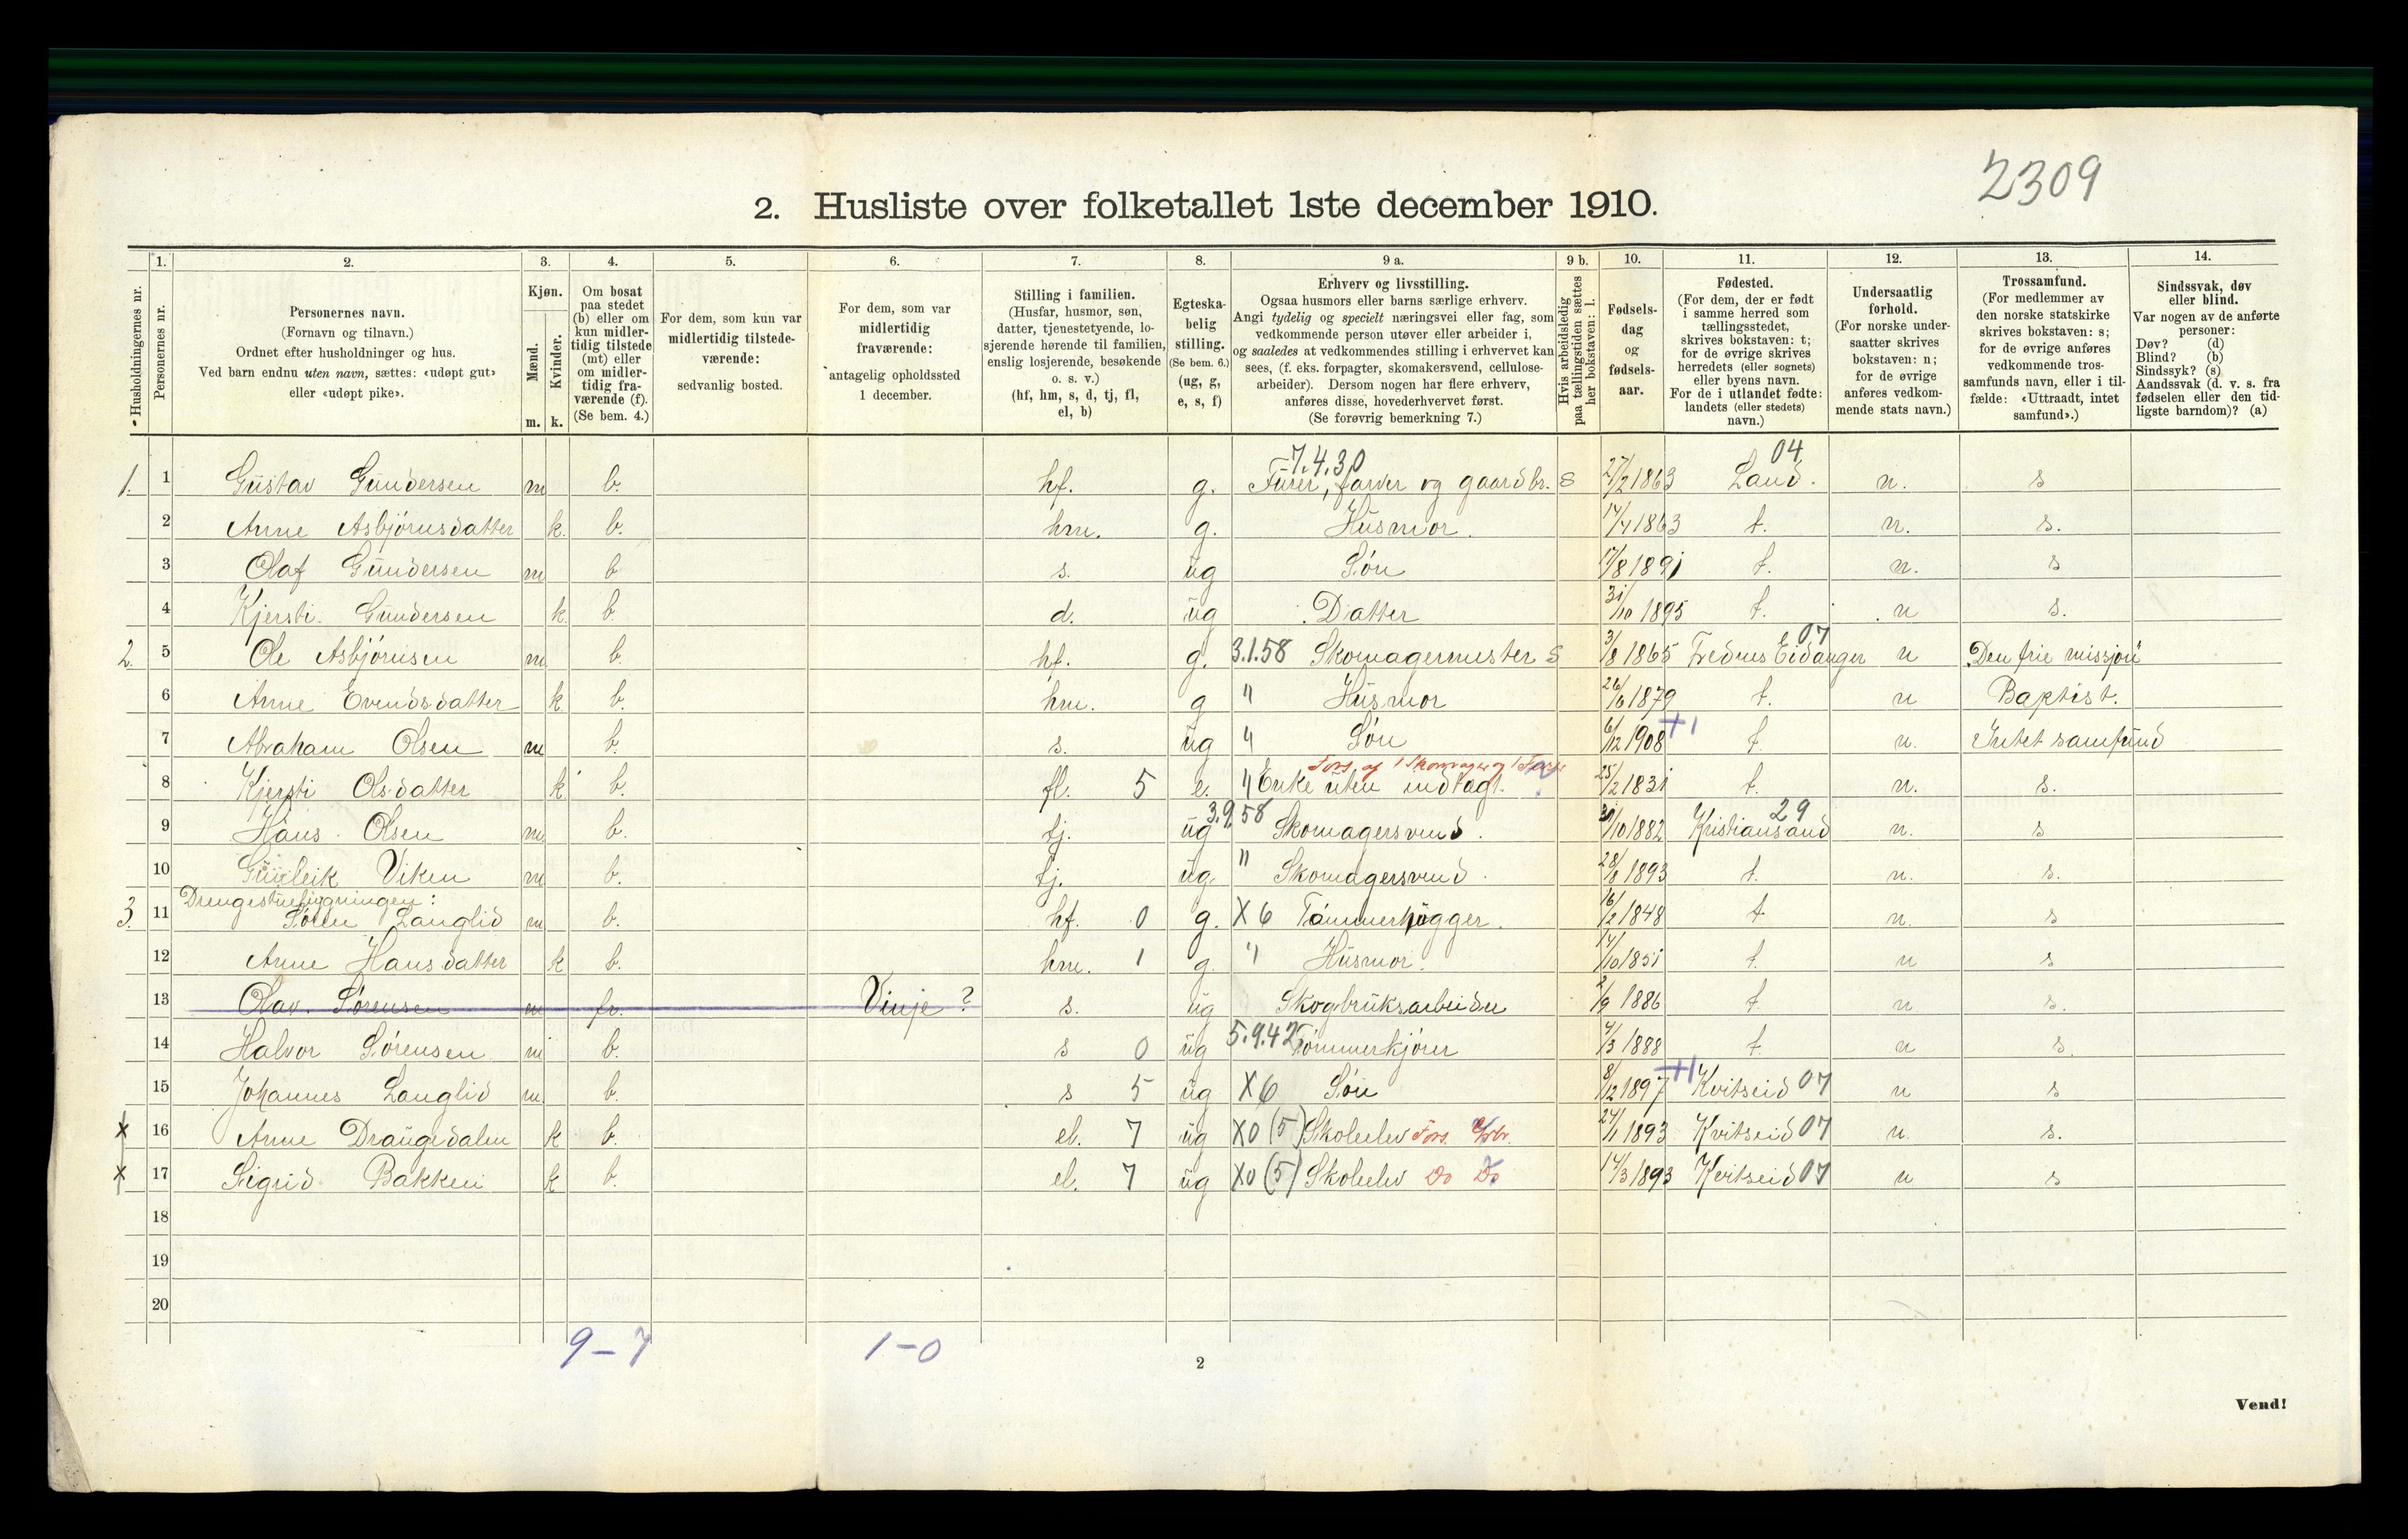 2309
2. Husliste over folketallet 1ste december 1910.
Husholdningernes nr.
1.
Personernes nr.
2.
Personernes navn.
(Fornavn og tilnavn.)
Ordnet efter husholdninger og hus.
Ved barn endnu uten navn, sættes: «udøpt gut»
eller «udøpt pike».
3.
Kjøn.
Mænd.
Kvinder.
m. k.
4.
Om bosat
paa stedet
(b) eller om
kun midler-
tidig tilstede
(mt) eller
om midler-
tidig fra-
værende (f).
(Se bem. 4.)
5.
For dem, som kun var
midlertidig tilstede-
værende:
sedvanlig bosted.
6.
For dem, som var
midlertidig
fraværende:
antagelig opholdssted
1 december.
7.
Stilling i familien.
(Husfar, husmor, søn,
datter, tjenestetyende, lo-
sjerende hørende til familien,
enslig losjerende, besøkende
o. s. v.)
(hf, hm, s, d, tj, fl,
el, b)
8.
Egteska-
belig
stilling.
(Se bem. 6.)
(ug, g,
e, s, f)
9 a.
Erhverv og livsstilling.
Ogsaa husmors eller barns særlige erhverv.
Angi tydelig og specielt næringsvei eller fag, som
vedkommende person utøver eller arbeider i,
og saaledes at vedkommendes stilling i erhvervet kan
sees, (f. eks. forpagter, skomakersvend, cellulose-
arbeider). Dersom nogen har flere erhverv,
anføres disse, hovederhvervet først.
(Se forøvrig bemerkning 7.)
9 b.
Hvis arbeidsledig
paa tællingstiden sættes
her bokstaven: l.
10.
Fødsels-
dag
og
fødsels-
aar.
11.
Fødested.
(For dem, der er født
i samme herred som
tællingsstedet,
skrives bokstaven: t;
for de øvrige skrives
herredets (eller sognets)
eller byens navn.
For de i utlandet fødte:
landets (eller stedets)
navn.)
12.
Undersaatlig
forhold.
(For norske under-
saatter skrives
bokstaven: n;
for de øvrige
anføres vedkom-
mende stats navn.)
13.
Trossamfund.
(For medlemmer av
den norske statskirke
skrives bokstaven: s;
for de øvrige anføres
vedkommende tros-
samfunds navn, eller i til-
fælde: «Uttraadt, intet
samfund».)
14.
Sindssvak, døv
eller blind.
Var nogen av de anførte
personer:
Døv? (d)
Blind? (b)
Sindssyk? (s)
Aandssvak (d. v. s. fra
fødselen eller den tid-
ligste barndom)? (a)
7.4.30 04
1. 1 Gustav Gundersen m b. hf. g. Furer, farver og gaardbr. S 27/2 1863 Land. n. s
2 Anne Asbjørnsdatter k. b. hm. g. Husmor. 1863 t. n. s.
3 Olaf Gundersen m b s. ug Søn 17/8 1891 t. n. s
4 Kjersti Gundersen k b. d. ug Datter 31/10 1895 t. n s.
07
2. 5 Ole Asbjørnsen m b. hf. g. 3.1.58 Skomagermester S 3/8 1865 Eidanger n Den frie missjon
6 Anne Evendsdatter k b. hm. g " Husmor 26/6 1879 t. n Baptist.
7 Abraham Olsen m b. s. ug " Søn 6/12 1908 +1 t. n. Intet samfund
Fors. af 1 Skomager og 1
8 Kjersti Olsdatter k b. fl. 5 e. " Enke uten indtægt. 25/2 1831 t. n. s.
29
9 Hans Olsen m. b. tj. ug 3.9.58 Skomagersvend. 30/10 1882 Kristiansand n. s
10 Gunleik Viken m b. tj. ug. " Skomagersvend. 28/8 1893 t. n. s.
Drengestuebygningen:
3. 11 Søren Langlid m b. hf. 0 g. X 6 Tømmerhugger. 16/2 1848 t n. s
12 Anne Hansdatter k b. hm. 1 g. " Husmor. 14/10 1851 t. n s
13 Olav Sørensen m fr. Vinje ? s. ug Skogbruksarbeider 2/9 1886 t n s.
14 Halvor Sørensen m b. s 0 ug 5.9.42 Tømmerkjører 4/3 1888 t. n s.
15 Johannes Langlid m. b. s 5 ug X6 Søn 8/12 1897 +1 Kvitseid 07 n s
X 16 Anne Draugedalen k b. el. 7 ug X0 (5) Skoleelev Fors. Gbr. 24/1 1893 Kvitseid 07 n. s.
X 17 Sigrid Bakken k b. el. 7 ug X0 (5) Skoleelev Do Do 14/3 1893 Kvitseid 07 n s
18
19
20
9-7 1-0
2
Vend!